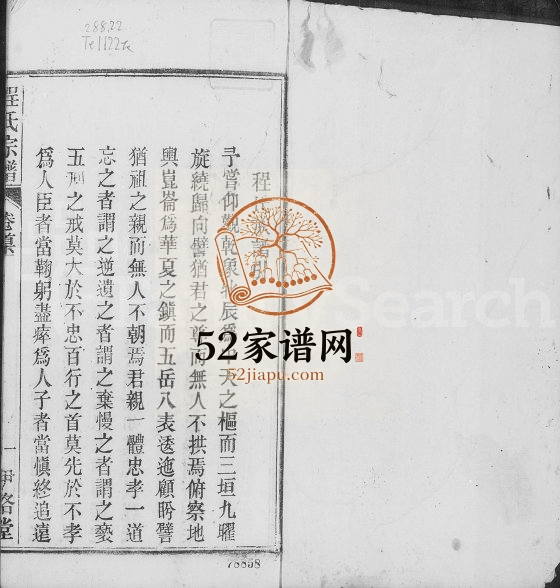 288.22
Te1122te
程
予嘗仰觀乾象北辰爲中天之樞而三垣九曜
旋繞歸向譬猶君之尊而無人不拱焉俯察地
輿崑崙爲華夏之鎭而五岳八表逶迤顧盻譬
猶祖之親而無人不朝焉君親一體忠孝一道
忘之者謂之逆遺之者謂之棄慢之者謂之褻
五刑之戒莫大於不忠百行之首莫先於不孝
爲人臣者當鞠躬盡瘁爲人子者當愼終追遠
程氏宗譜
卷首
一
伊洛堂
52家谱网
52jiapu.com
Search